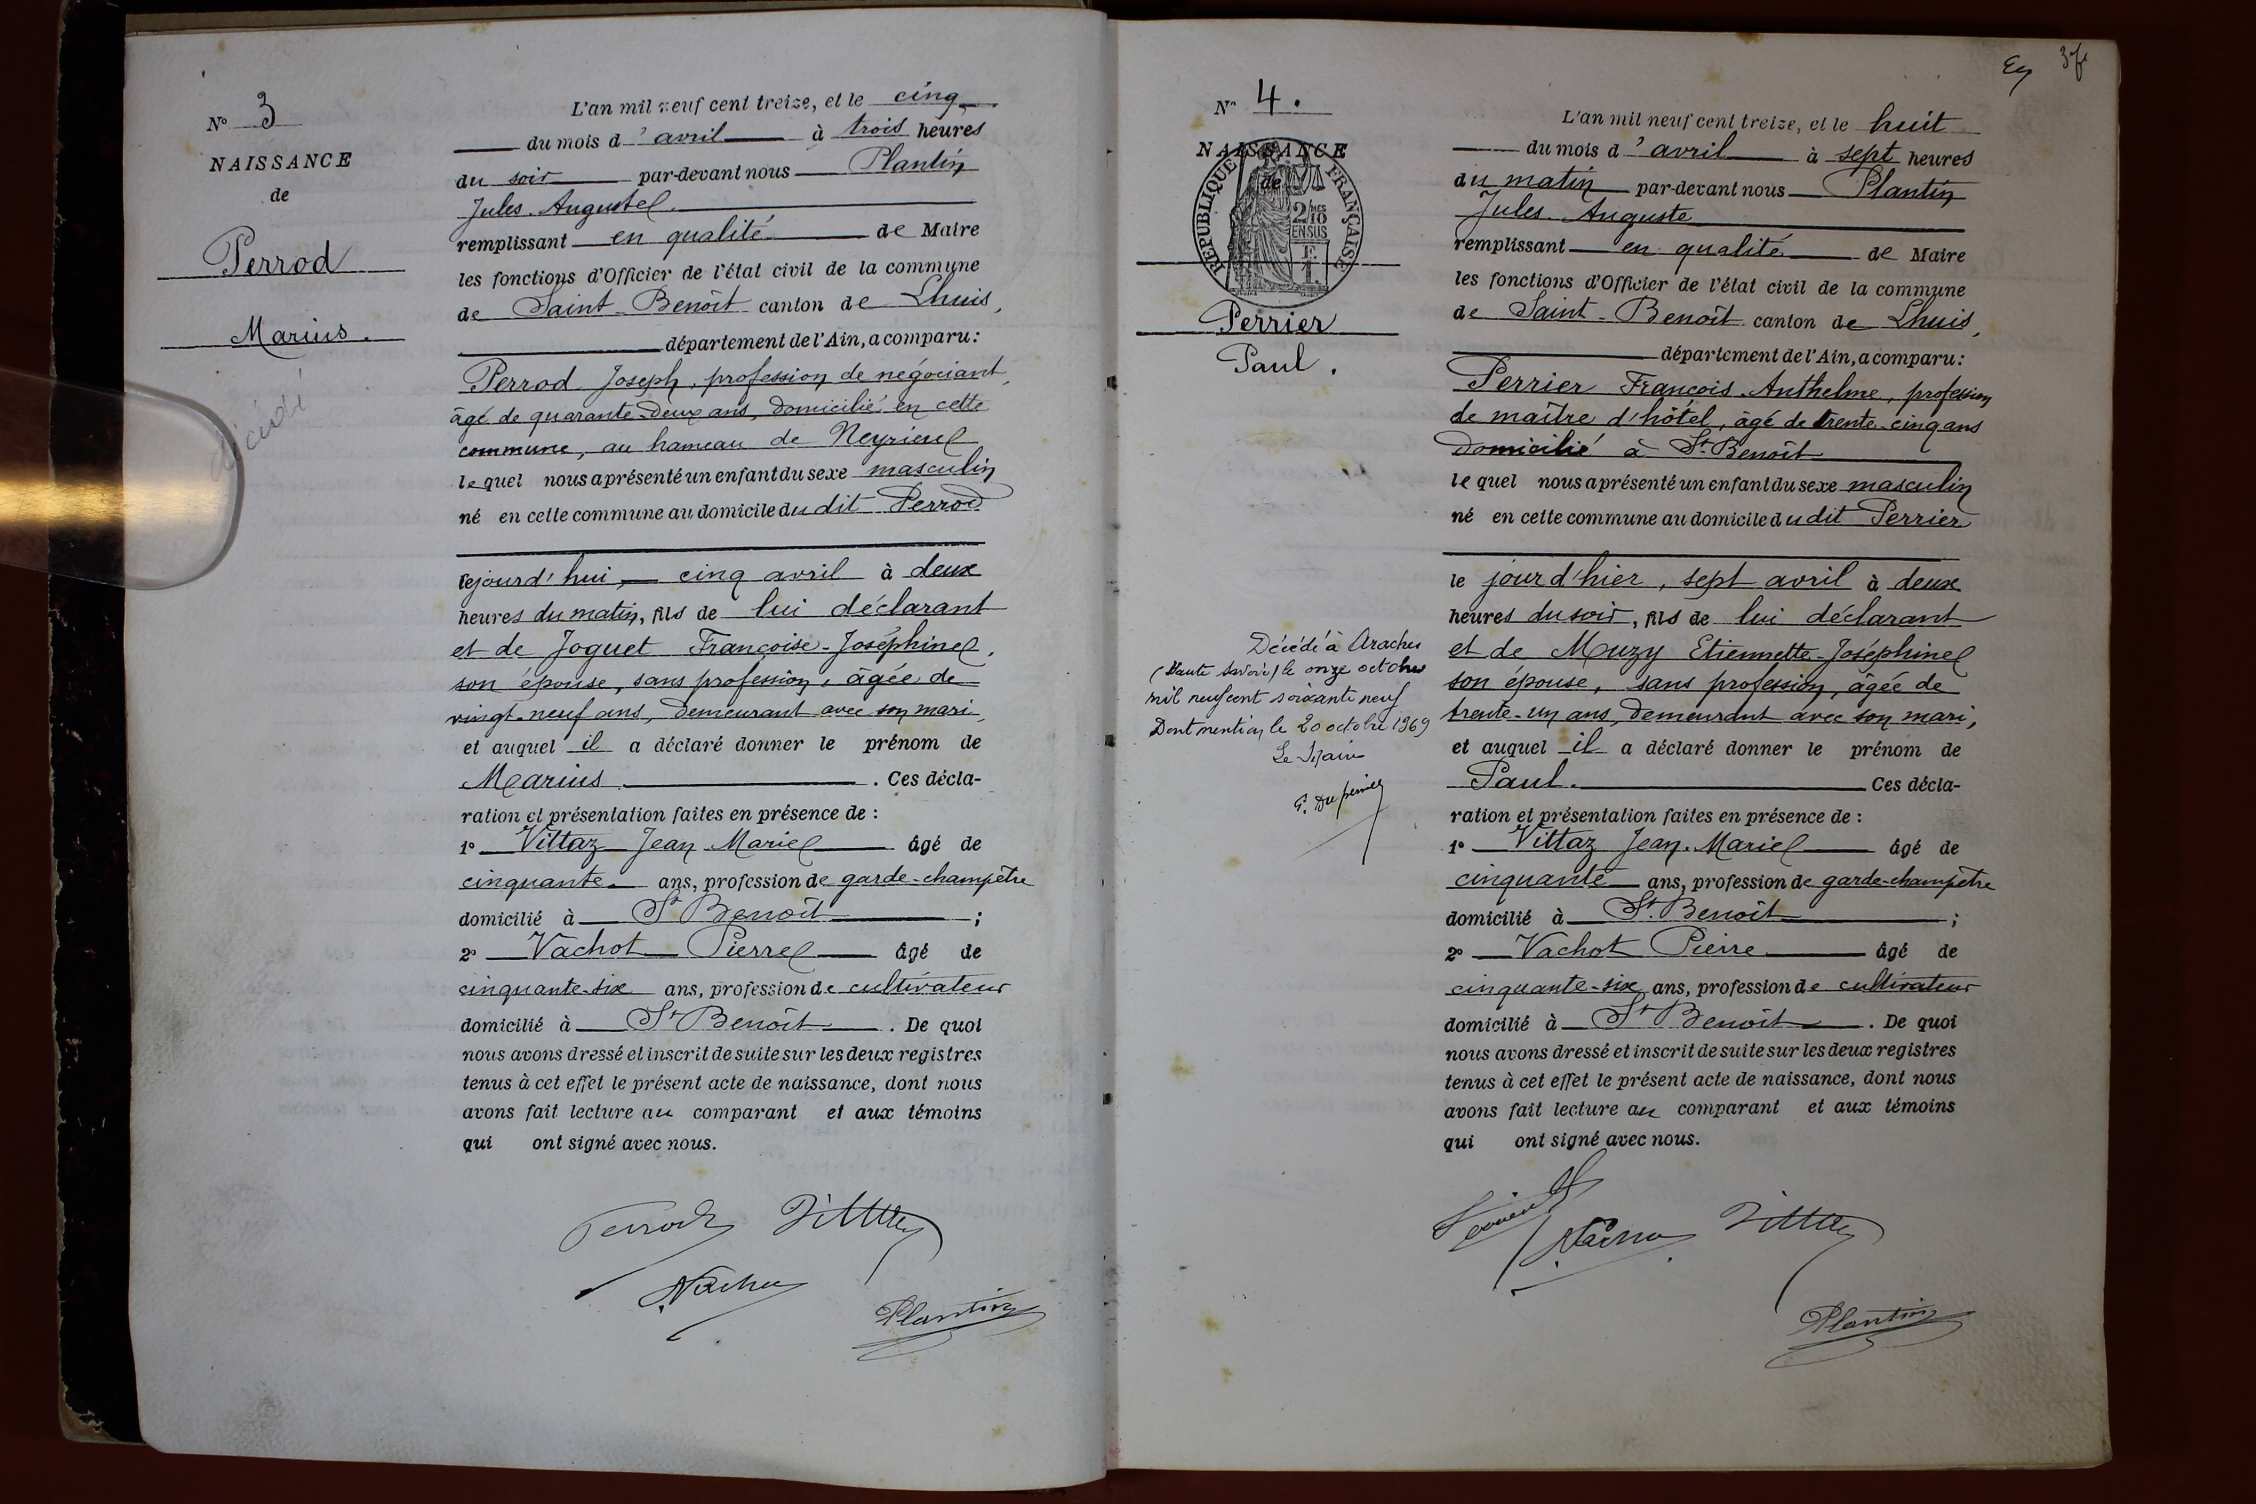 N° 3
NAISSANCE
de
Perrod
Marius.
décédé
L'an mil neuf cent treize, et le cinq
du mois d'avril à trois heures
du soir par-devant nous Plantin
Jules Auguste
remplissant en qualité de Maire
les fonctions d'Officier de l'état civil de la commune
de Saint-Benoît canton de Lhuis,
département de l'Ain, a comparu:
Perrod Joseph, profession de négociant,
âgé de quarante-deux ans, domicilié en cette
commune, au hameau de Neyrieu
lequel nous a présenté un enfant du sexe masculin
né en cette commune au domicile du dit Perrod
lejourd'hui, cinq avril à deux
heures du matin, fils de lui déclarant
et de Joguet Françoise-Joséphine,
son épouse, sans profession, âgée de
vingt-neuf ans, demeurant avec son mari,
et auquel il a déclaré donner le prénom de
Marius. Ces décla-
ration et présentation faites en présence de :
1° Vittaz Jean-Marie âgé de
cinquante ans, profession de garde-champêtre
domicilié à St Benoît ;
2° Vachot Pierre âgé de
cinquante-six ans, profession de cultivateur
domicilié à St Benoît. De quoi
nous avons dressé et inscrit de suite sur les deux registres
tenus à cet effet le présent acte de naissance, dont nous
avons fait lecture au comparant et aux témoins
qui ont signé avec nous.
Perrod Vittaz
Vachot
Plantin
N° 4.
NAISSANCE
de
RÉPUBLIQUE FRANÇAISE
2/10MES
EN SUS
Perrier
Paul.
Décédé à Araches
(Haute Savoie) le onze octobre
mil neuf cent soixante neuf
Dont mention le 20 octobre 1969
Le Maire
L'an mil neuf cent treize, et le huit
du mois d'avril à sept heures
du matin par-devant nous Plantin
Jules Auguste
remplissant en qualité de Maire
les fonctions d'Officier de l'état civil de la commune
de Saint-Benoît canton de Lhuis,
département de l'Ain, a comparu:
Perrier François-Anthelme, profession
de maître d'hôtel, âgé de trente-cinq ans
domicilié à St Benoît
lequel nous a présenté un enfant du sexe masculin
né en cette commune au domicile du dit Perrier
le jour d'hier, sept avril à deux
heures du soir, fils de lui déclarant
et de Muzy Etiennette-Joséphine
son épouse, sans profession, âgée de
trente-un ans, demeurant avec son mari,
et auquel il a déclaré donner le prénom de
Paul. Ces décla-
ration et présentation faites en présence de :
1° Vittaz Jean-Marie âgé de
cinquante ans, profession de garde-champêtre
domicilié à St. Benoît ;
2° Vachot Pierre âgé de
cinquante-six ans, profession de cultivateur
domicilié à St Benoît. De quoi
nous avons dressé et inscrit de suite sur les deux registres
tenus à cet effet le présent acte de naissance, dont nous
avons fait lecture au comparant et aux témoins
qui ont signé avec nous.
Perrier Vachot Vittaz
Plantin